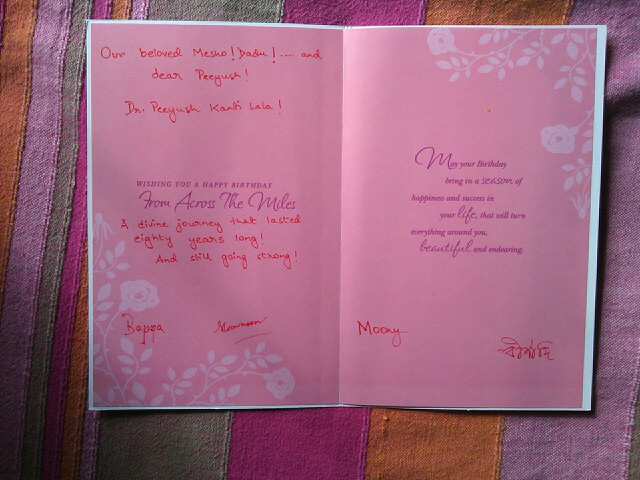 Our beloved Mesho! Dadu! .... and
dear Peeyush!
Dr. Peeyush Kanti Lala!
WISHING YOU A HAPPY BIRTHDAY
From Across The Miles
A divine journey that lasted
eighty years long!
And still going strong!
Bappa
Moony
May your Birthday
bring in a season of
happiness and success in
your life, that will turn
everything around you,
beautiful and endearing.